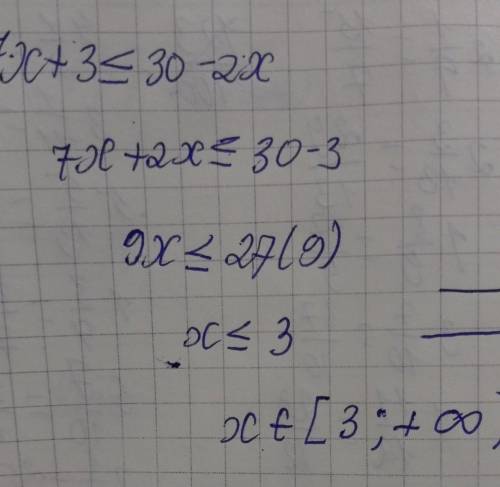 7x + 3 ≤ 30 - 2x
7x + 2x ≤ 30 - 3
9x ≤ 27 (9)
x ≤ 3
x ∈ [3; +∞)